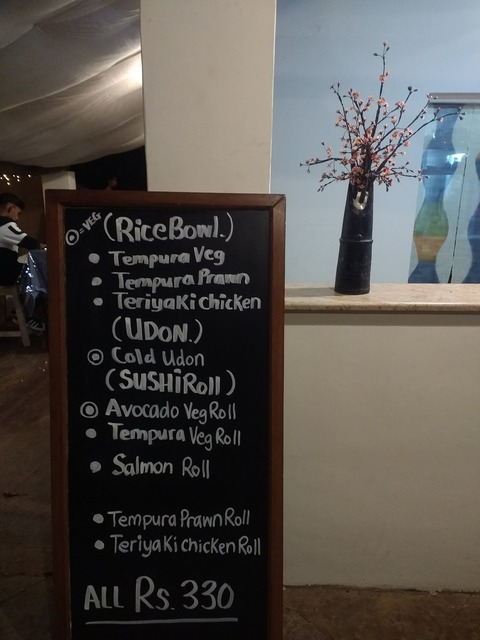 = VEG
(Rice Bowl.)
Tempura Veg
Tempura Prawn
Teriyaki Chicken
(UDON.)
Cold Udon
(SUSHi Roll)
Avocado Veg Roll
Tempura Veg Roll
Salmon Roll
Tempura Prawn Roll
Teriyaki chicken Roll
ALL Rs. 330